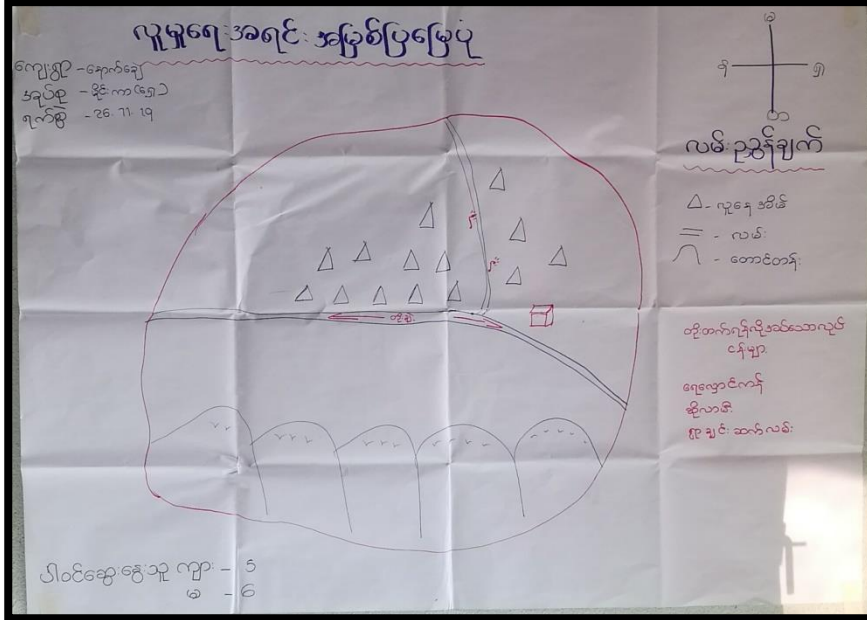 လူမှုရေးအရင်းအမြစ်ပြမြေပုံ
ကျေးရွာ - နောက်ချေ
အုပ်စု - ခိုင်းကာ(ရှေ့)
ရက်စွဲ - 26.11.19
မ
န
ရှ
တ
လမ်းညွှန်ချက်
- လူနေအိမ်
- လမ်း
- တောင်တန်း
တိုးတက်ရန်လိုအပ်သောလုပ်
ငန်းများ
ရေလှောင်ကန်
ဆိုလာမီး
ရွာချင်းဆက်လမ်း
ပါဝင်ဆွေးနွေးသူ ကျား - 5
မ - 6